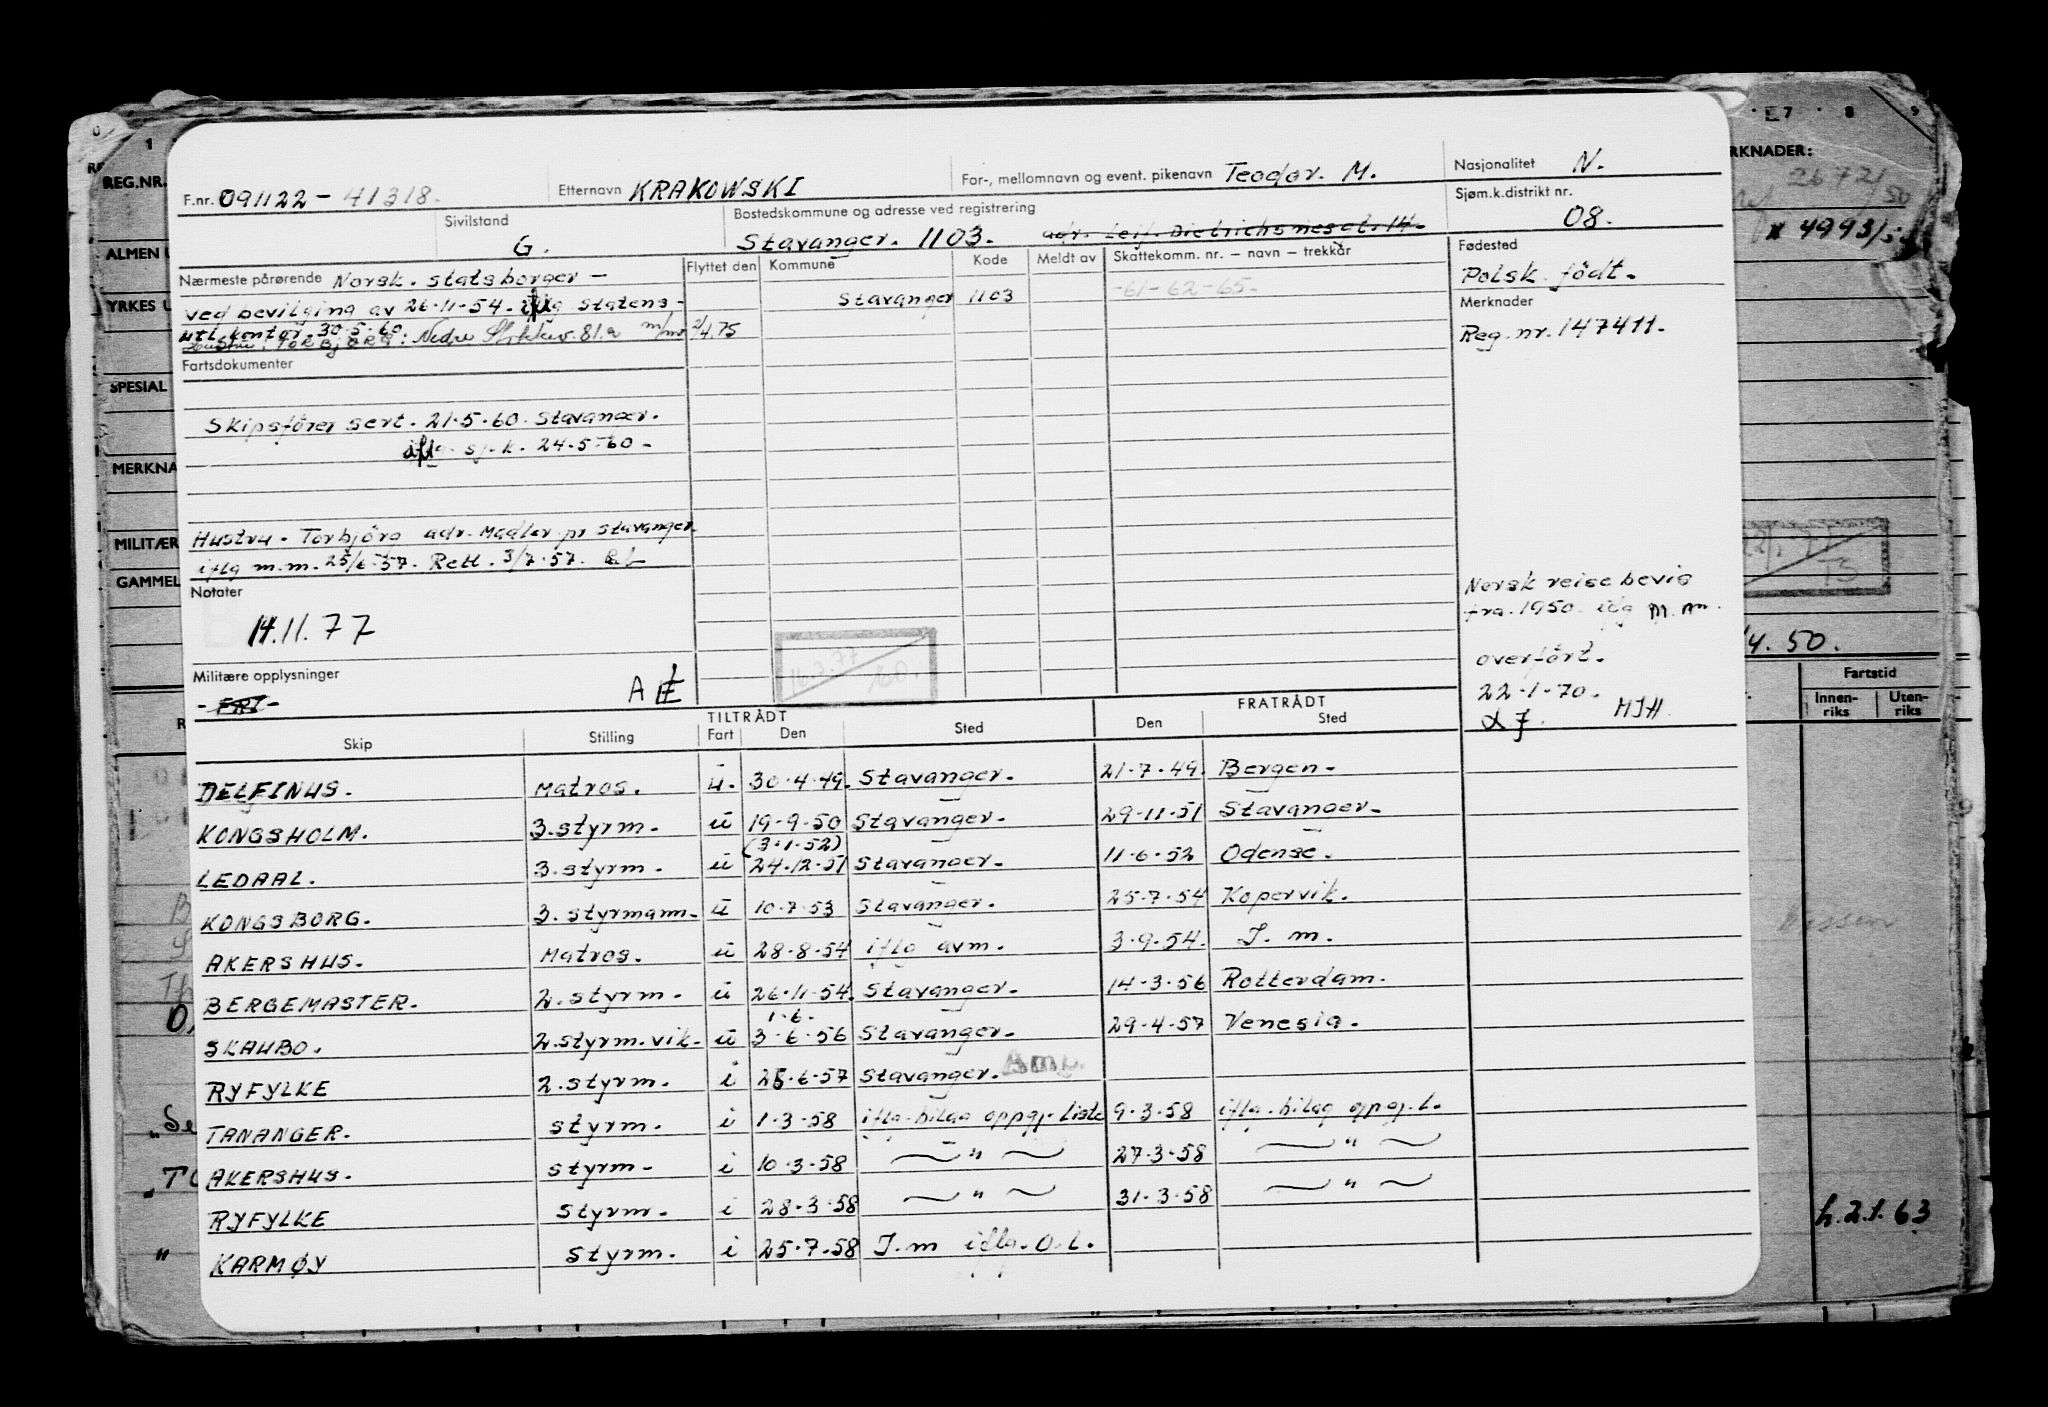 F.nr. 091122 - 41318. Etternavn KRAKOWSKI For-, mellomnavn og event. pikenavn Teodor. M. Nasjonalitet N.
Sivilstand G. Bostedskommune og adresse ved registrering Stavanger. 1103. Sjøm.k.distrikt nr. 08.
Nærmeste pårørende Norsk. statsborger - Flyttet den Kommune Kode Meldt av Skattekomm. nr. — navn — trekkår Fødested
Polsk. född.
ved bevilging av 26-11-54. iflg statens - Stavanger 1103 -61-62-65-
Merknader
utl. kontor. 30-5-60.
Nedre 81.a 2/4.75 Reg.nr. 147411.
Fartsdokumenter
Skipsfører sert. 21.5.60. Stavanger.
iflg. sj.k. 24-5-60 -
Hustru - Torbjörg adr. Madla pr Stavanger
iflg m.m. 25/6-57. Rett. 3/7-57.
Notater
14.11.77
Norsk reisebevis
fra. 1950. iflg m.m.
overført.
22-1-70.
MJH
Militære opplysninger
A
TILTRÅDT FRATRÅDT
Skip Stilling Fart Den Sted Den Sted
DELFINUS. Matros. u. 30.4.49. Stavanger. 21.7.49. Bergen-
KONGSHOLM. 3.styrm. u 19-9-50 Stavanger. 29-11-51 Stavanger.
(3.1.52)
LEDAAL. 3.styrm. u 24.12.51 Stavanger. 11-6-52 Odense.
KONGSBORG. 3.styrmann. u 10.7.53 Stavanger. 25.7.54 Kopervik.
AKERSHUS. Matros. u 28-8-54 iflg avm. 3-9-54. J. m.
BERGEMASTER. 2.styrm. u 26.11.54. Stavanger. 14-3-56 Rotterdam.
1.6.
SKAUBO. 2.styrm.vik. u 3-6-56 Stavanger. 29-4-57 Venesia.
RYFYLKE 2.styrm. i 25-6-57 Stavanger.
TANANGER. styrm. i 1-3-58 iflg. bilag oppgj. liste 9-3-58 iflg. bilag oppgj. l.
AKERSHUS. styrm- i 10-3-58 — " — 27-3-58 — " —
RYFYLKE styrm. i 28-3-58 — " — 31-3-58 — " —
KARMØY styrm. i 25.7.58 J.m iflg. O.L.
REG.NR.
ALMEN
YRKES
SPESIAL
MERKNA
MILITÆR
GAMMEL
RKNADER:
26721/50
4993/5
/4.50.
Fartstid
Innen-riks Uten-riks
h.2.1.63